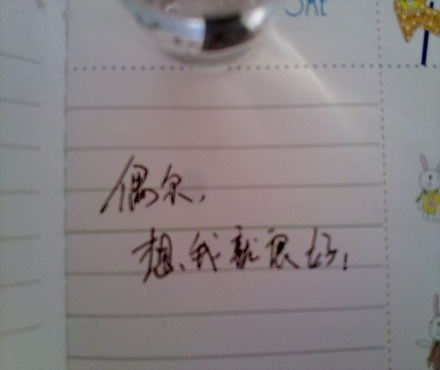 SHE
偶尔,
想我就很好!